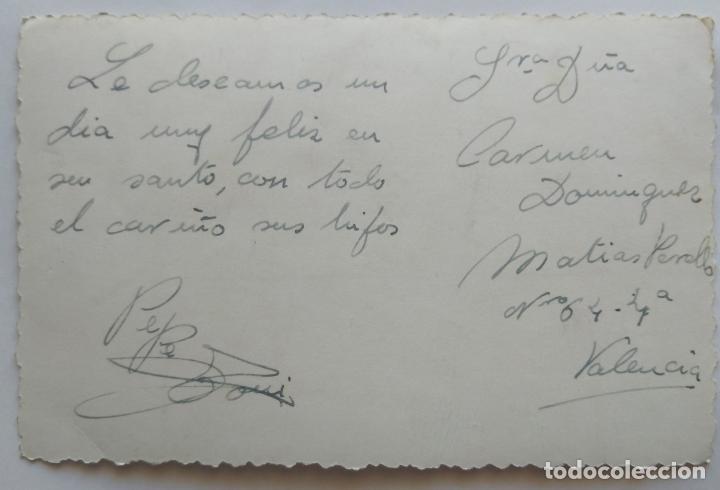 Le deseamos un
dia muy feliz en
seu santo, con todo
el cariño sus hijos
Pepe
Sra Dña
Carmen
Dominguez
Matias Perello
Nro 64-4ª
Valencia
todocoleccion.net